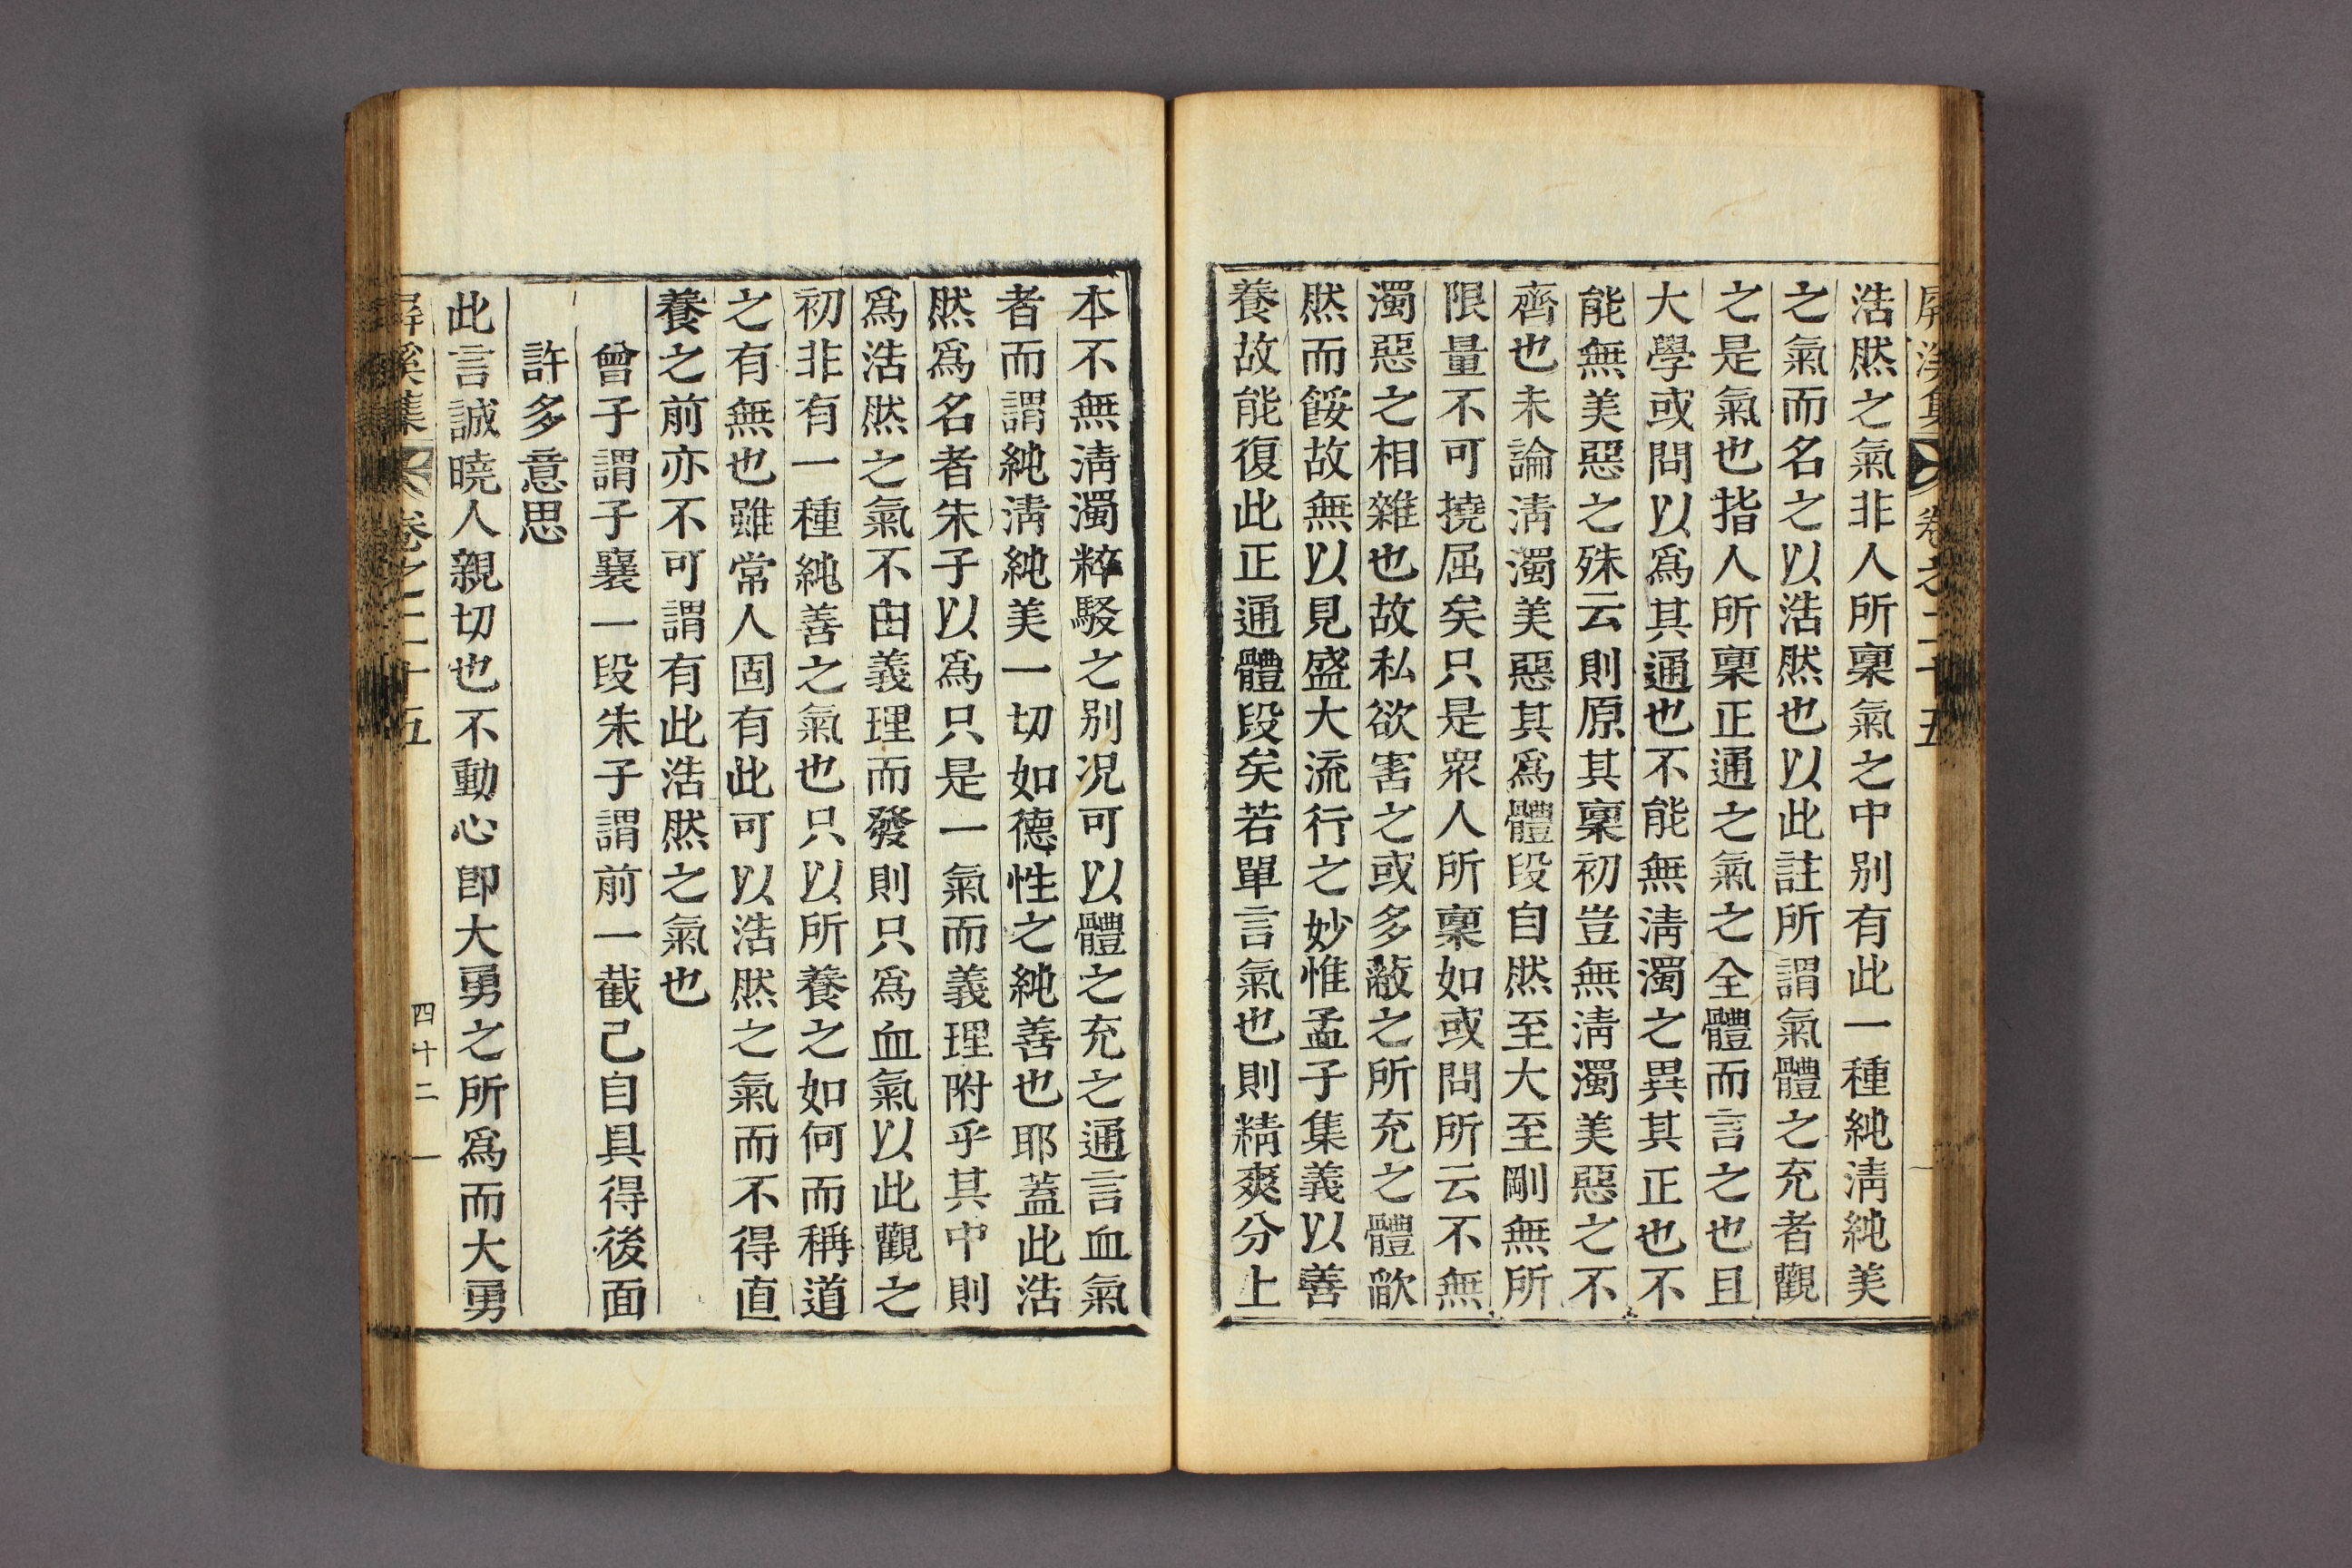 屏溪集 卷之二十五
浩然之氣非人所稟氣之中別有此一種純淸純美
之氣而名之以浩然也以此註所謂氣體之充者觀
之是氣也指人所稟正通之氣之全體而言之也且
大學或問以爲其通也不能無淸濁之異其正也不
能無美惡之殊云則原其稟初豈無淸濁美惡之不
齊也未論淸濁美惡其爲體段自然至大至剛無所
限量不可撓屈矣只是衆人所稟如或問所云不無
濁惡之相雜也故私欲害之或多蔽之所充之體歉
然而餒故無以見盛大流行之妙惟孟子集義以善
養故能復此正通體段矣若單言氣也則精爽分上
本不無淸濁粹駁之别况可以體之充之通言血氣
者而謂純淸純美一切如德性之純善也耶蓋此浩
然爲名者朱子以爲只是一氣而義理附乎其中則
爲浩然之氣不由義理而發則只爲血氣以此觀之
初非有一種純善之氣也只以所養之如何而稱道
之有無也雖常人固有此可以浩然之氣而不得直
養之前亦不可謂有此浩然之氣也
曾子謂子襄一段朱子謂前一截己自具得後面
許多意思
此言誠曉人親切也不動心卽大勇之所爲而大勇
屏溪集 卷之二十五 四十二